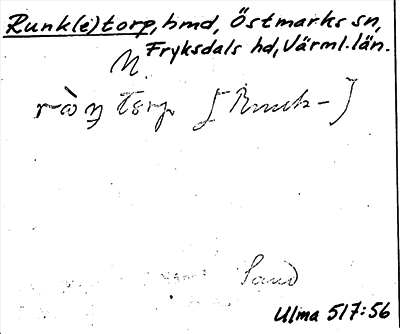 Runk(e)torp, hmd, Östmarks sn,
Fryksdals hd, Värml. län.
N.
Sand
Ulma 517:56